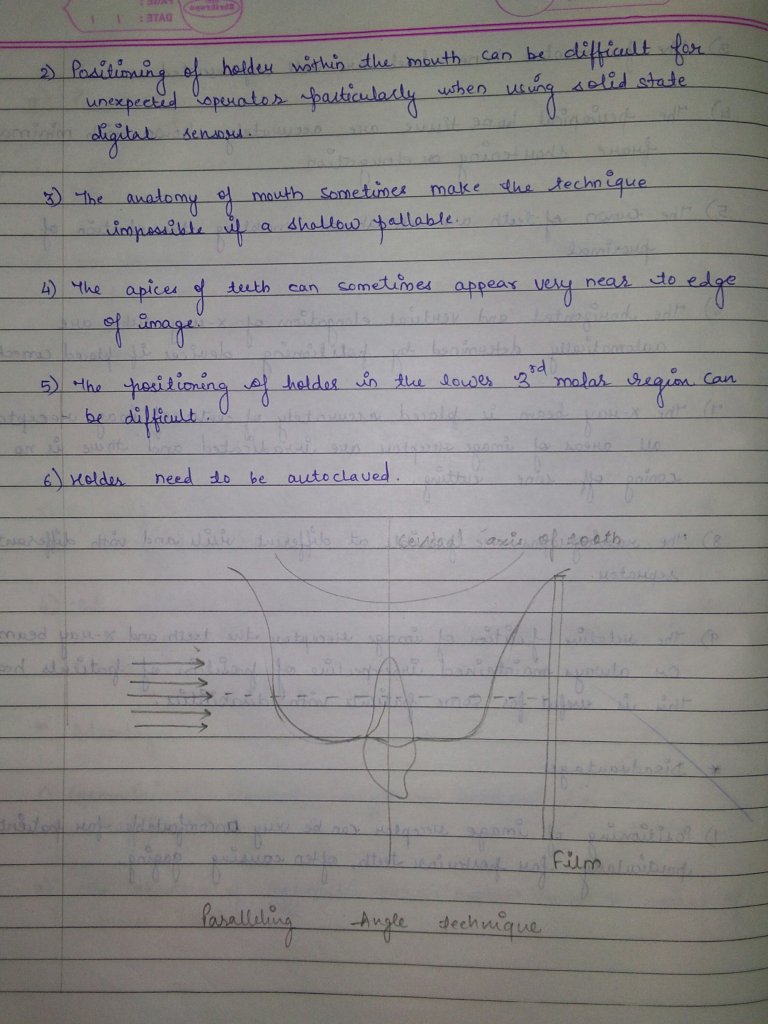 2) Positioning of holder within the mouth can be difficult for
unexpected operator particularly when using solid state
digital sensors.
3) The anatomy of mouth sometimes make the technique
impossible if a shallow pallable.
4) The apices of teeth can sometimes appear very near to edge
of image.
5) The positioning of holder in the lower 3rd molar region can
be difficult.
6) Holder need to be autoclaved.
axis of tooth
Film
Paralleling Angle technique